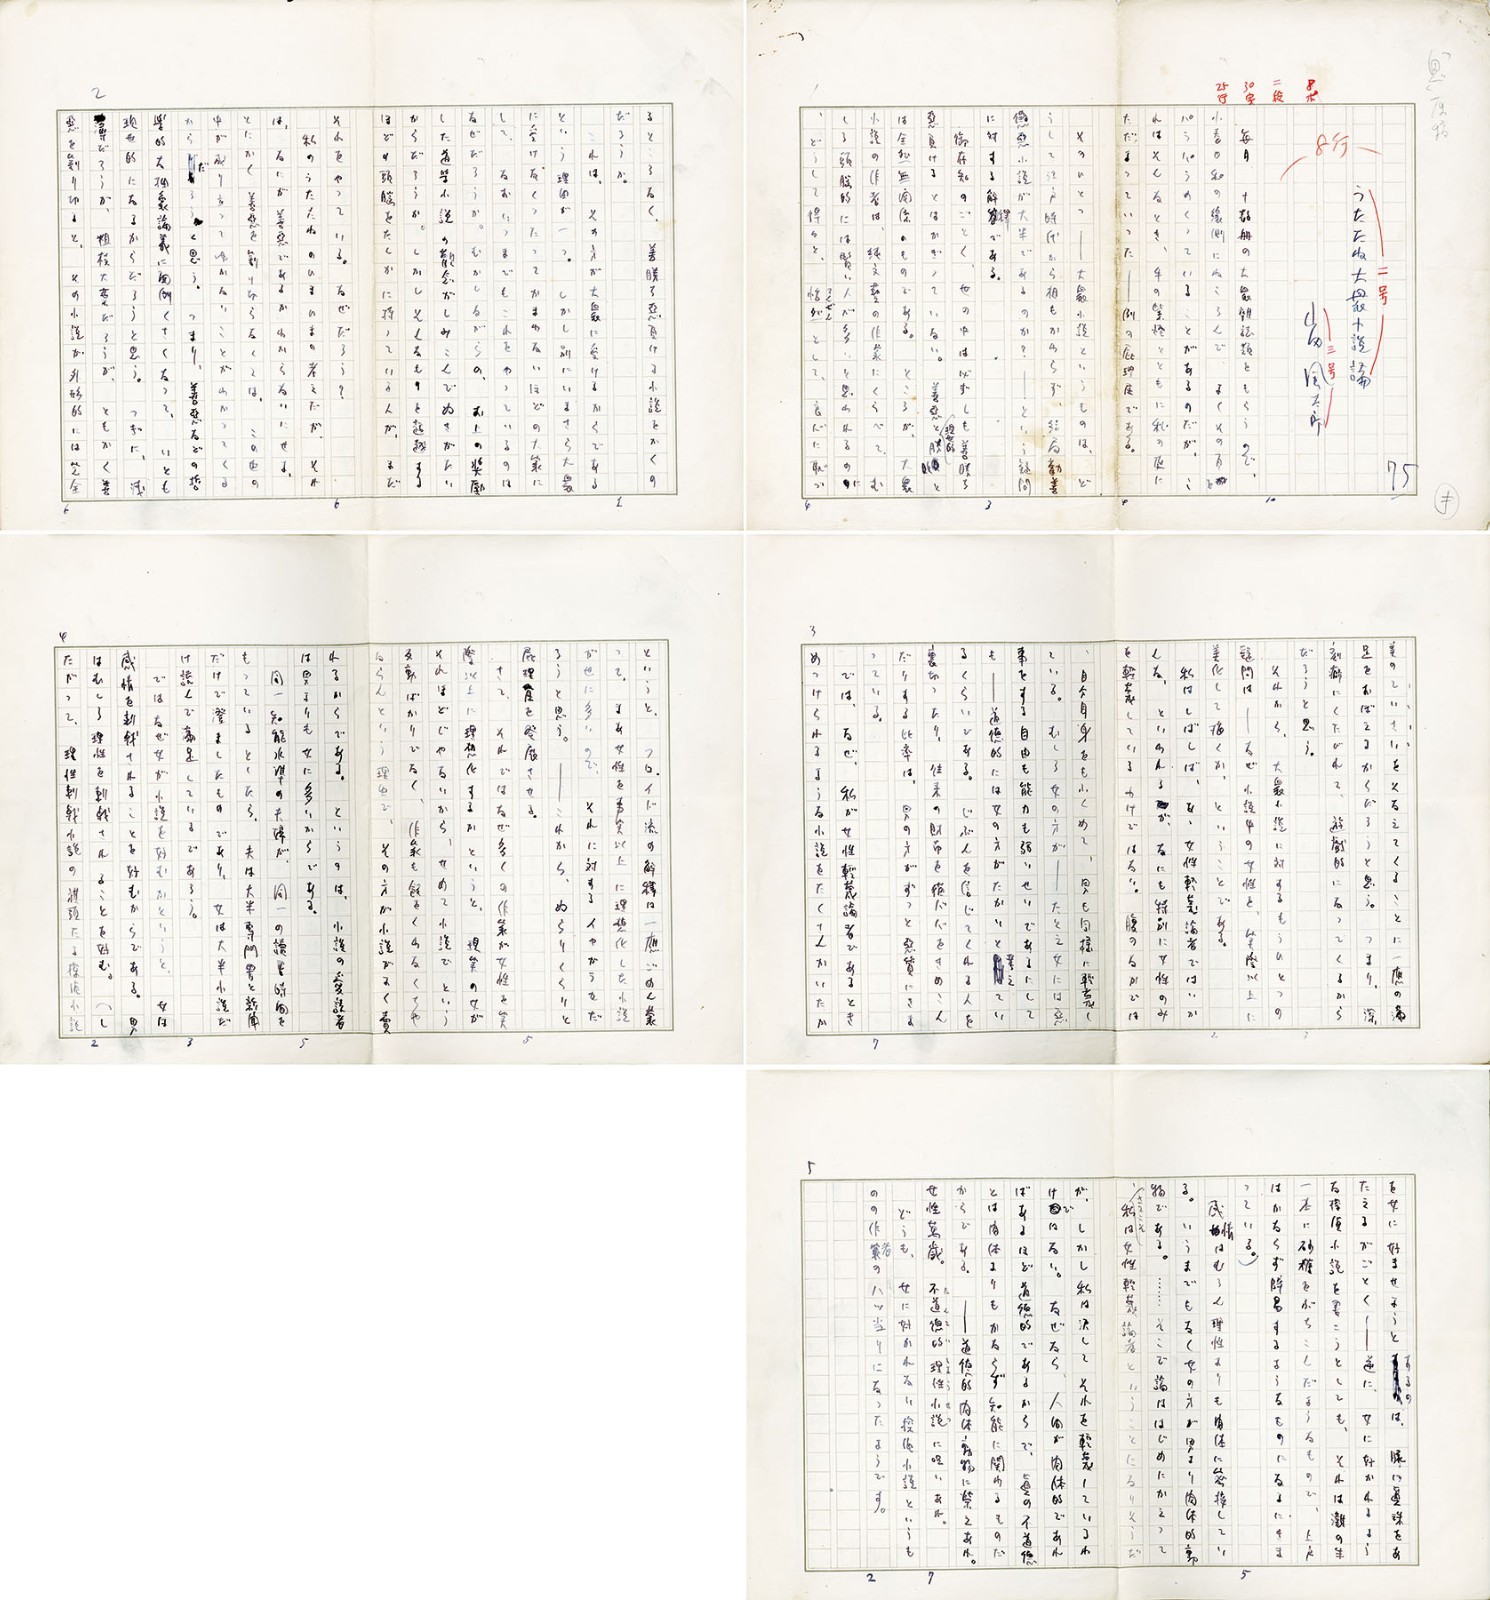 8ポ
二段
30字
25行
8行
二号
うたたね大衆小説論
三号
山田風太郎
75
毎月、十数冊の大衆雑誌類をもらうので、
小春日和の縁側にねころんで、よくその頁を
パラパラめくっていることがあるのだが、こ
れはそんなとき、牛の
ただよっていった——例の屁理屈である。
そのひとつ——大衆小説というものは、ど
うして江戸時代から相もかわらず、結局勧善
懲悪小説が大半であるのか?——という疑問
に対する解釋である。
御存知のごとく、世の中は必ずしも善勝ち
悪負けるとはかぎっていない。善悪と現世的勝負と
は全然無関係のものである。ところが、大衆
小説の作者は、純文藝の作家にくらべて、む
しろ頭脳的には賢い人が多いと思われるのに
、どうして惇々と、恬然として、
2
るところなく、善勝ち悪負ける小説をかくの
だろうか。
これは、その方が大衆に受けるからである
という理由が一つ。しかし別にいまさら大衆
に受けなくったってかまわないほどの大家に
して、なおいつまでもこれをやっているのは
なぜだろうか。むかしながらの、お上の奨励
した道学小説の観念がしみこんでぬきがたい
からだろうか。しかしそんなものを超越する
ほどの頭脳をたしかに持っている人が、まだ
それをやっている。なぜだろう?
私のうたたねのひまひまの考えだが、それ
は、なにが善悪であるかわからないにせよ、
とにかく善悪を割り切らなくては、この世の
中が成り立ってゆかないことがわかってくる
からだろうと思う。つまり、善悪などの哲
学的大抽象論議に面倒くさくなって、いとも
現世的になるからだろうと思う。つぎに、浅
薄だろうが、粗枝大葉だろうが、ともかく善
悪を割り切ると、その小説が外形的には完全
3
美のていさいをそなえてくることに一應の満
足をおぼえるからだろうと思う。つまり、深
刻癖にくたびれて、遊戯的になってくるから
だろうと思う。
それから、大衆小説に対するもうひとつの
疑問は——なぜ小説中の女性を、実際以上に
美化して描くか、ということである。
私はしばしば、お、女性軽蔑論者ではいか
んな、といわれるが、なにも特別に女性のみ
を軽蔑しているわけではない。腹のなかでは
、自分自身をもふくめて、男も同様に軽蔑し
ている。むしろ女の方が——たとえ女には悪
事をする自由も能力も弱いせいであるにして
も——道徳的には女の方がたかいと考えてい
るくらいである。じぶんを信じてくれる人を
裏切ったり、往来の財布を猫ババをきめこん
だりする比率は、男の方がずっと悪質にきま
っている。
では、なぜ、私が女性軽蔑論者であるとき
めつけられるような小説をたくさんかいたか
4
というと、フロイド流の解釋は一應ごめん蒙
って、まあ女性を事実以上に理想化した小説
が世に多いので、それに対するイヤがらせだ
ろうと思う。——これから、ぬらりくらりと
屁理屈を発展させる。
さて、それではなぜ多くの作家が女性を実
際以上に理想化するかというと、現実の女が
それほどじゃないから、せめて小説でという
衝動ばかりでなく、作家も餓えくわなくちゃ
ならんという理由で、その方が小説がよく賣
れるからである。というのは、小説の愛読者
は男よりも女に多いからである。
同一知能水準の夫婦が、同一の讀書時間を
もっているとしたら、夫は大半専門書と新聞
だけで澄ましたものであり、女は大半小説だ
け讀んで満足しているであろう。
ではなぜ女が小説を好むかというと、女は
感情を刺戟されることを好むからである。男
はむしろ理性を刺戟されることを好む。(し
たがって、理性刺戟小説の旗頭たる探偵小説
5
を女に好ませようとあるのは、豚に真珠をあ
たえるがごとく——逆に、女に好かれるよう
な探偵小説を書こうとしても、それは灘の生
一本に砂糖をぶちこんだようなもので、上戸
はかならず辟易するようなものになるにきま
っている。)
感情はむろん理性よりも肉体に密接してい
る。いうまでもなく女の方が男より肉体的動
物である。……そこで論ははじめにかえって
、さてこそ私は女性軽蔑論者ということになりそうだ
が、しかし私は決してそれを軽蔑しているわ
けではない。なぜなら、人間が肉体的であれ
ばあるほど道徳的であるからで、真の不道徳
とは肉体よりもかならず知能に関わるものだ
からである。——道徳的肉体動物に栄えあれ。
女性萬歳。不道徳的理性小説に呪いあれ。
どうも、女に好かれない探偵小説というも
のの作者のハッ当りになったようです。